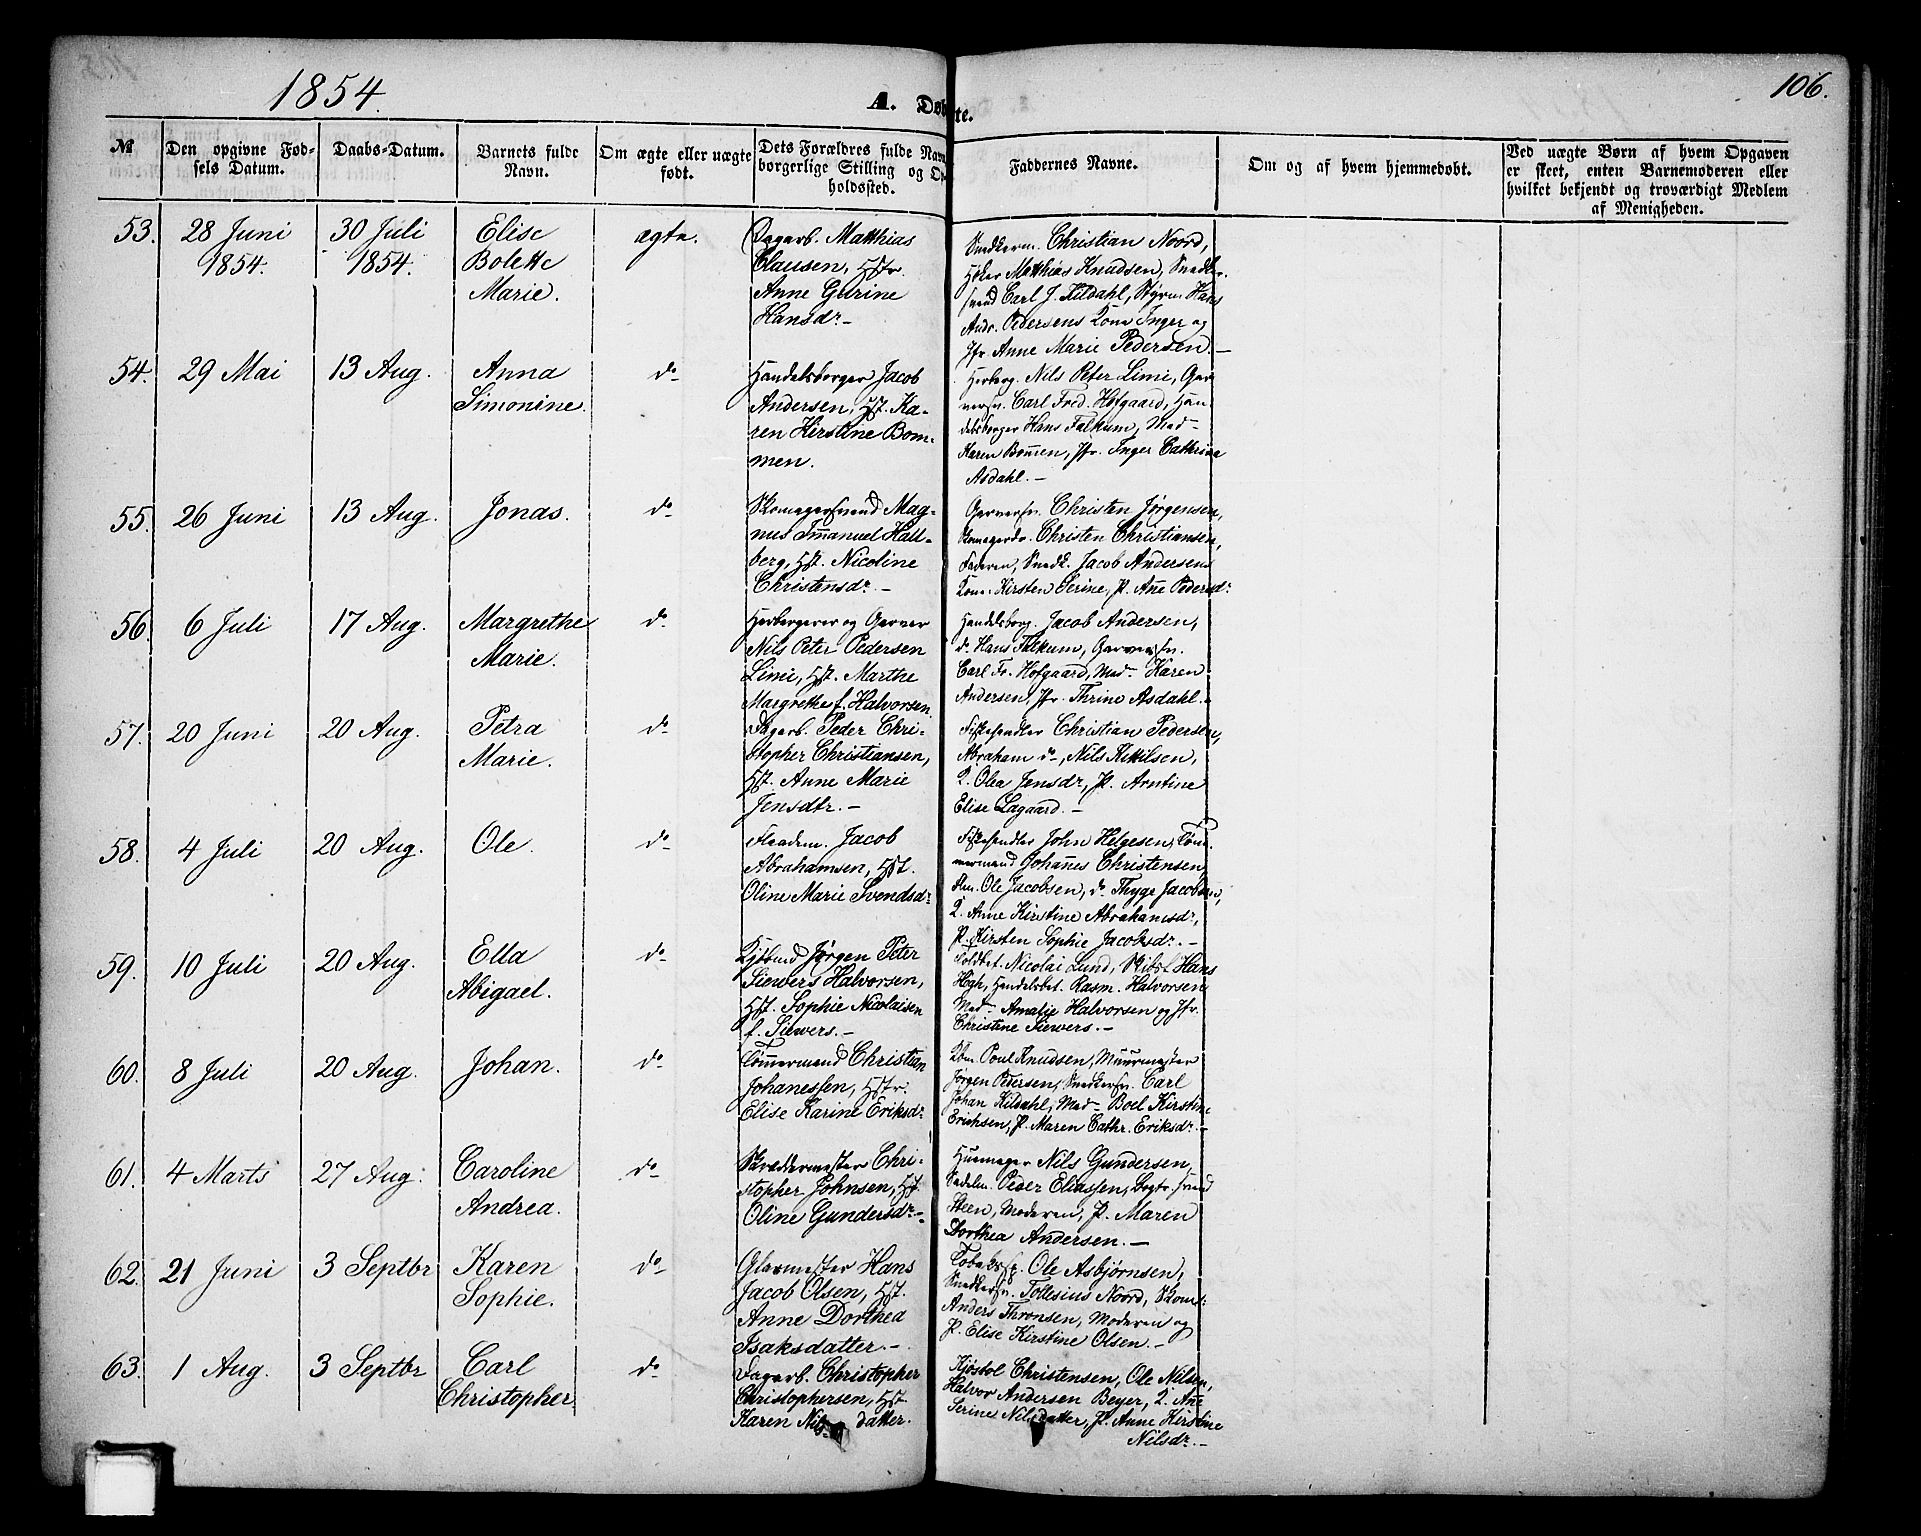 1854.
A. Døbte.
106.
№
Den opgivne Fød-
sels Datum.
Daabs-Datum.
Barnets fulde
Navn.
Om ægte eller uægte
født.
Dets Forældres fulde Navn
borgerlige Stilling og Op-
holdssted.
Faddernes Navne.
Om og af hvem hjemmedøbt.
Ved uægte Børn af hvem Opgaven
er skeet, enten Barnemoderen eller
hvilket bekjendt og troværdigt Medlem
af Menigheden.
53. 28 Juni 1854. 30 Juli 1854. Elise Bolette Marie. ægte.
Dagarb. Matthias
Clausen, Hstr.
Anne Gurine
Hansdr.-
Snedkerm. Christian Noord,
Høker Matthias Knudsen, Snedker-
svend Carl J. Kildahl, Styrm. Hans
Andr. Pedersens Kone Inger og
Jfr. Anne Marie Pedersen.-
54. 29 Mai 13 Aug. Anna Simonine. do
Handelsborger Jacob
Andersen, Hst. Ka-
ren Kirstine Bom-
men.
Herberg. Nils Peter Limi, Gar
versv. Carl Fred. Hofgaard, Han
delsborger Hans Falkum, Mad-
Karen Bom̄en, Jfr. Inger Cathrine
Asdahl.-
55. 26 Juni 13 Aug. Jonas. do
Skomagersvend Mag-
nus Im̄anuel Hall-
berg, Hst. Nicoline
Christensdr.-
Garversv. Christen Jørgensen,
Skomagerdr. Christen Christiansen,
Faderen, Snedk. Jacob Andersens
Kone Kirsten Serine, P. Añe Pedersdr.
56. 6 Juli 17 Aug. Margrethe Marie. do
Herbergerer og Garver
Nils Peter Pedersen
Limi, Hst. Marthe
Margrethe f. Halvorsen.
Handelsborg. Jacob Andersen,
do Hans Falkum, Garversv.
Carl Fr. Hofgaard, Mad- Karen
Andersen, Jfr. Thrine Asdahl.-
57. 20 Juni 20 Aug. Petra Marie. do
Dagarb. Peder Chri-
stopher Christiansen,
Hst. Anne Marie
Jensdtr.-
Fiskehandler Christian Pedersen,
Abraham do, Nils Kittilsen,
K. Olea Jensdr, P. Arntine
Elise Lagaard.-
58. 4 Juli 20 Aug. Ole. do
Jacob
Abrahamsen, Hst.
Oline Marie Svendsdr.
Fiskehandler John Helgesen, Tøm̄-
mermand Johan̄es Christensen,
Ole Jacobsen, do Thyge Jacobsen,
K. Anne Kirstine Abrahamsdr,
P. Kirsten Sophie Jacobsdr.-
59. 10 Juli 20 Aug. Ella Abigael. do
Kjøbmd Jørgen Peter
Siewers Halvorsen,
Hst. Sophie Nicolaisen
f. Siewers.-
Toldbet. Nicolai Lund, Skibsf. Hans
Høgh, Handelsbet. Rasm. Halvorsen
Mad- Amalie Halvorsen og Jfr.
Christine Siewers.-
60. 8 Juli 20 Aug. Johan. do
Tøm̄ermand Christian
Johanessen, Hstr.
Elise Karine Eriksdr.
Kbm. Poul Knudsen, Muurmester
Jørgen Pedersen, Snedkersv. Carl
Johan Kildahl, Mad- Boel Kirstine
Erichsen, P. Maren Cathr. Eriksdr.-
61. 4 Marts 27 Aug. Caroline Andrea. do
Skræddermester Chri-
stopher Johnsen, Hst.
Oline Gundersdr.-
Huemager Nils Gundersen,
Sadelm. Peder Eliassen, Bogtr. svend
Steen, Moderen, P. Maren
Dorthea Andersen.-
62. 21 Juni 3 Septbr Karen Sophie. do
Glarmester Hans
Jacob Olsen, Hst.
Anne Dorthea
Isaksdatter.-
Tobaksp. Ole Asbjørnsen,
Snedkersv. Tollesius Noord, Skom.
Anders Thronsen, Moderen og
P. Elise Kirstine Olsen.-
63. 1 Aug. 3 Septbr Carl Christopher do
Dagarb. Christopher
Christophersen, Hst.
Karen Nilsdatter.
Kjøstol Christensen, Ole Nilsen,
Halvor Andersen Beyer, K. Añe
Serine Nilsdatter, P. Anne Kirstine
Nilsdr.-